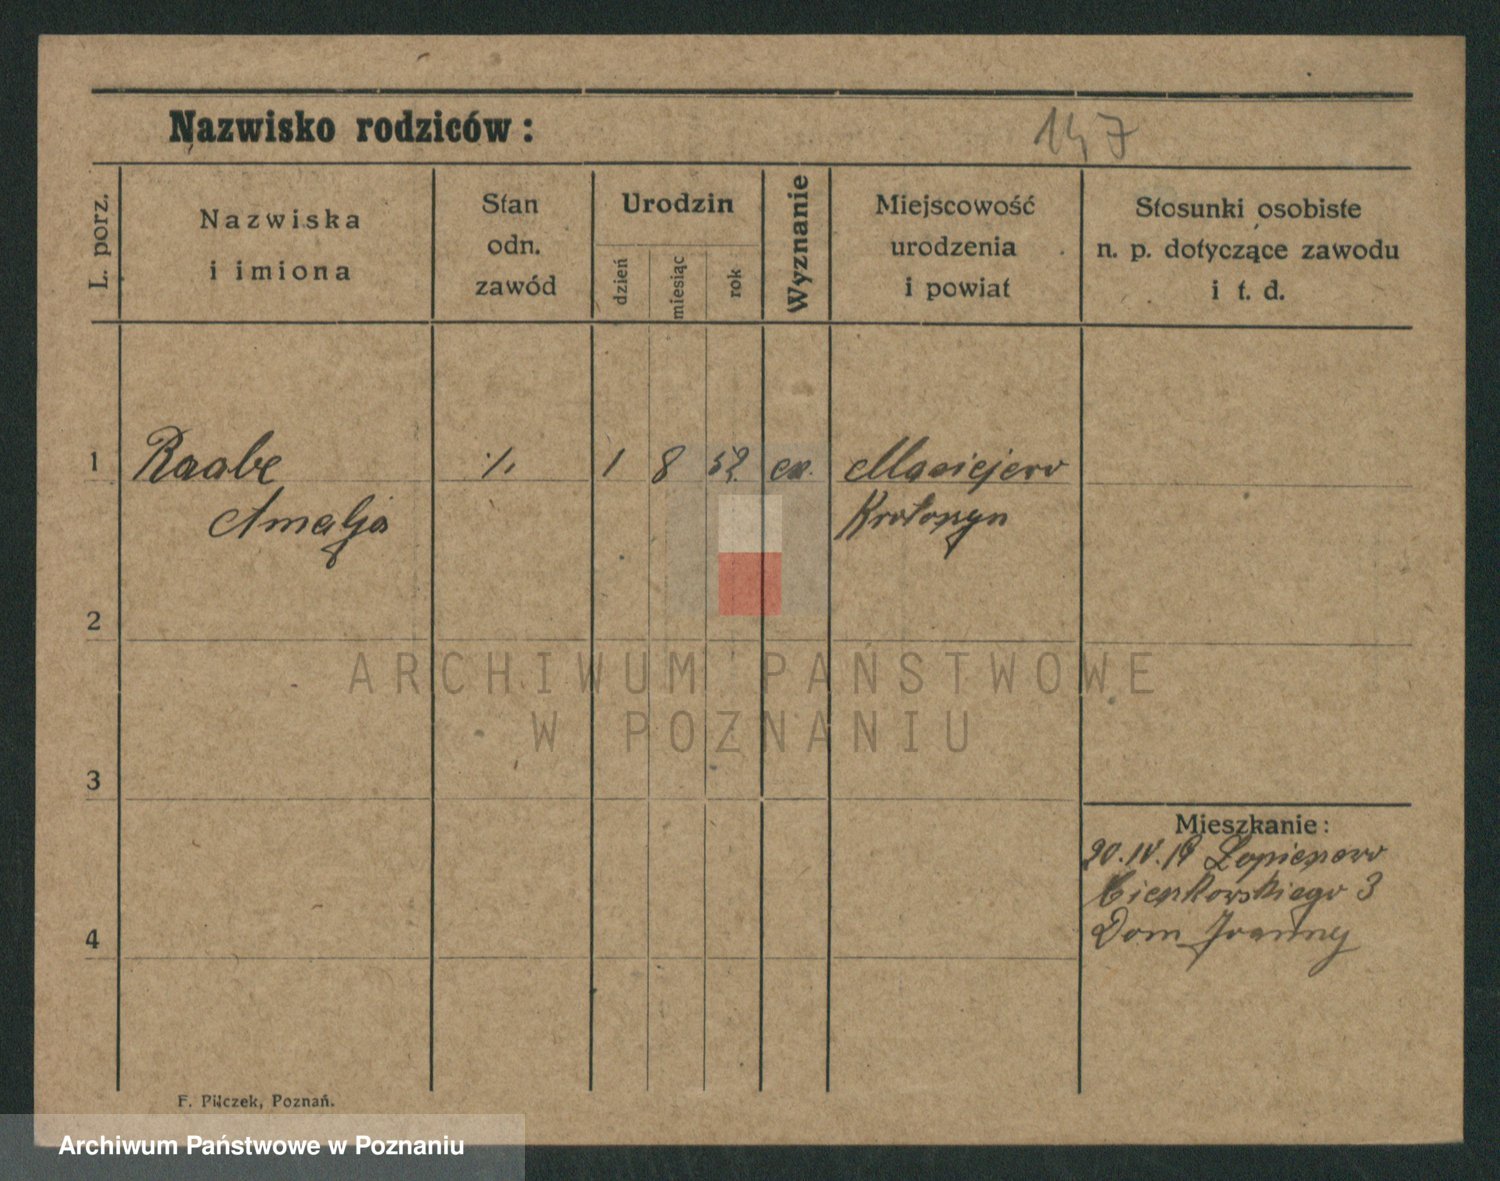 Nazwisko rodziców:
147
L. porz.
Nazwiska
i imiona
Stan
odn.
zawód
Urodzin
dzień
miesiąc
rok
Wyznanie
Miejscowość
urodzenia
i powiat
Stosunki osobiste
n. p. dotyczące zawodu
i t. d.
1
Raabe
Amalja
./.
1 8 52 ew.
Maciejew
Krotoszyn
2
3
4
Mieszkanie:
20.IV.19
3
Dom Joanny
F. Pilczek, Poznań.
ARCHIWUM PAŃSTWOWE
W POZNANIU
Archiwum Państwowe w Poznaniu